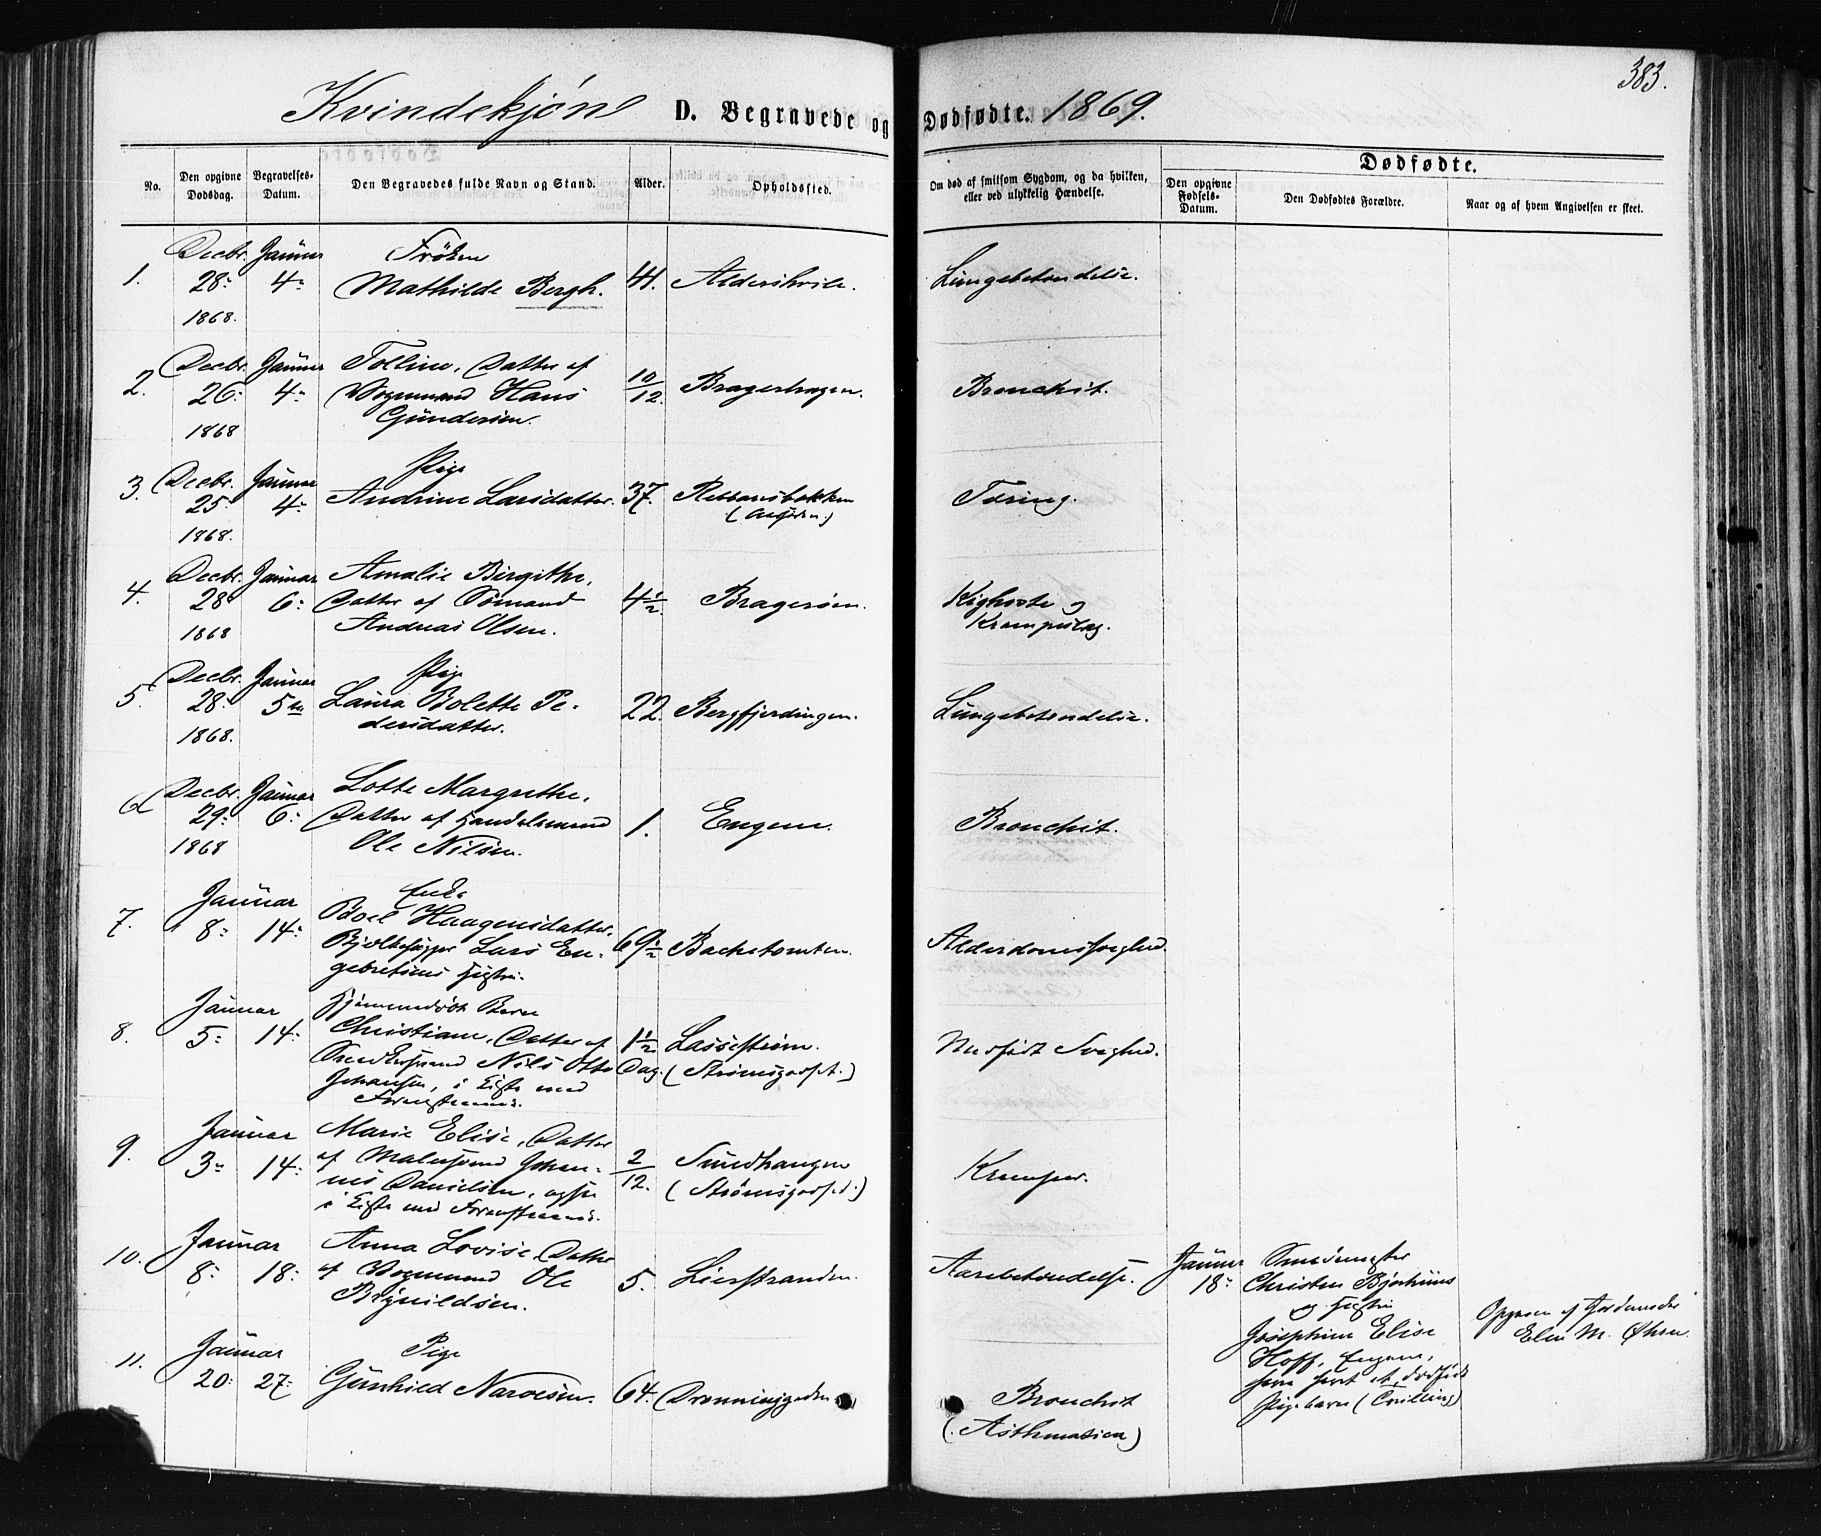 383.
Kvindekjøn D. Begravede og Dødfødte. 1869.
No. Den opgivne Dødsdag. Begravelses-Datum. Den Begravedes fulde Navn og Stand. Alder. Opholdssted. Om død af smitsom Sygdom, og da hvilken, eller ved ulykkelig Hændelse. Dødfødte.
Den opgivne Fødsels-Datum. Den Dødfødtes Forældre. Naar og af hvem Angivelsen er skeet.
Decbr. Januar Frøken
1. 28 4 Mathilde Bergh. 41. Aldershvile. Lungebetændelse.
1868.
Decbr. Januar Tolline, Datter af
2. 26 4 Vognmand Hans 10/12 Bragerhagen. Bronchit.
1868 Gundersen.
Decbr. Januar Pige
3. 25 4 Andrine Larsdatter. 37. Rettersbakken Tæring.
1868. (Asylden)
Decbr. Januar Amalie Birgithe,
4. 28 6 Datter af Sømand 4½ Bragerøen. Kighoste og
1868 Andreas Olsen. Krampeslag.
Decbr. Januar Pige
5. 28 5 Laura Bolette Pe- 22. Bergfjerdingen. Lungebetændelse.
1868. dersdatter.
Decbr. Januar Lotte Margrethe,
6 29 6 Datter af Handelsmand 1. Engene. Bronchit.
1868 Ole Nilsen.
Januar Enke
7. 8 14 Boel Haagensdatter, 69½ Bachetomten. Alderdomssvaghed.
Lars En-
gebretsens Hustru.
Januar Hjemmedøbt Barn
8. 5 14 Christiane, Datter af 1½ Lassestrøm. Medfødt Svaghed.
Nils Otto Dag. (Strømsgodset.)
Johansen, i Kiste med
Januar Marie Elise, Datter
9. 3 14 af Malersvend Johan- 2/12. Smedhaugen Kramper.
nes Danielsen, også (Strømsgodset.)
i Kiste med
Januar Anna Lovise, Datter
10. 8 18 af Vognmand Ole 5. Lierstranden. Aarebetændelse.
Brynildsen.
Januar 18 Smedmester
Christen Bjørhuus
og Hustru
Josephine Elise
Hoff, Engene,
have havt et dødfødt
Pigebarn (Tvilling)
Opgiven af Jordemoder
Elen M. Øhren.
Januar Pige
11. 20 27 Gunhild Narvesen. 64. Dronninggaden Bronchit
(Asthmatica)